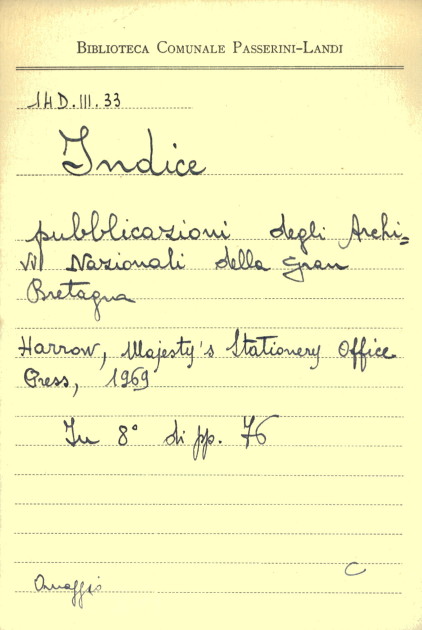 BIBLIOTECA COMUNALE PASSERINI-LANDI
14D.III.33
Indice
pubblicazioni degli Archi=
vi Nazionali della Gran
Bretagna
Harrow, Majesty's Stationery Office
Press, 1969
In 8° di pp. 76
C
Omaggio